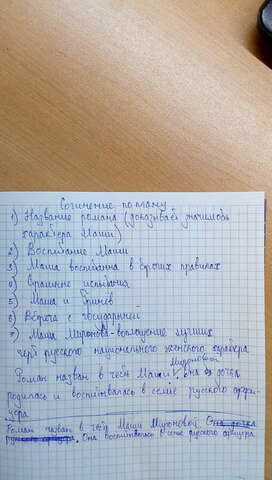 Сочинение по плану
1) Название романа (доказывает значимость
характера Маши)
2) Воспитание Маши
3) Маша воспитана в хороших правилах
4) Страшные испытания
5) Маша и Гринёв
6) Встреча с государыней
7) Маша Миронова - воплощение лучших
черт русского национального женского характера
Мироновой
Роман назван в честь Маши, она дочка
родилась и воспитывалась в семье русского офи-
цера
Роман назван в честь Маши Мироновой. Она дочка
русского Она воспитывалась в семье русского офицера